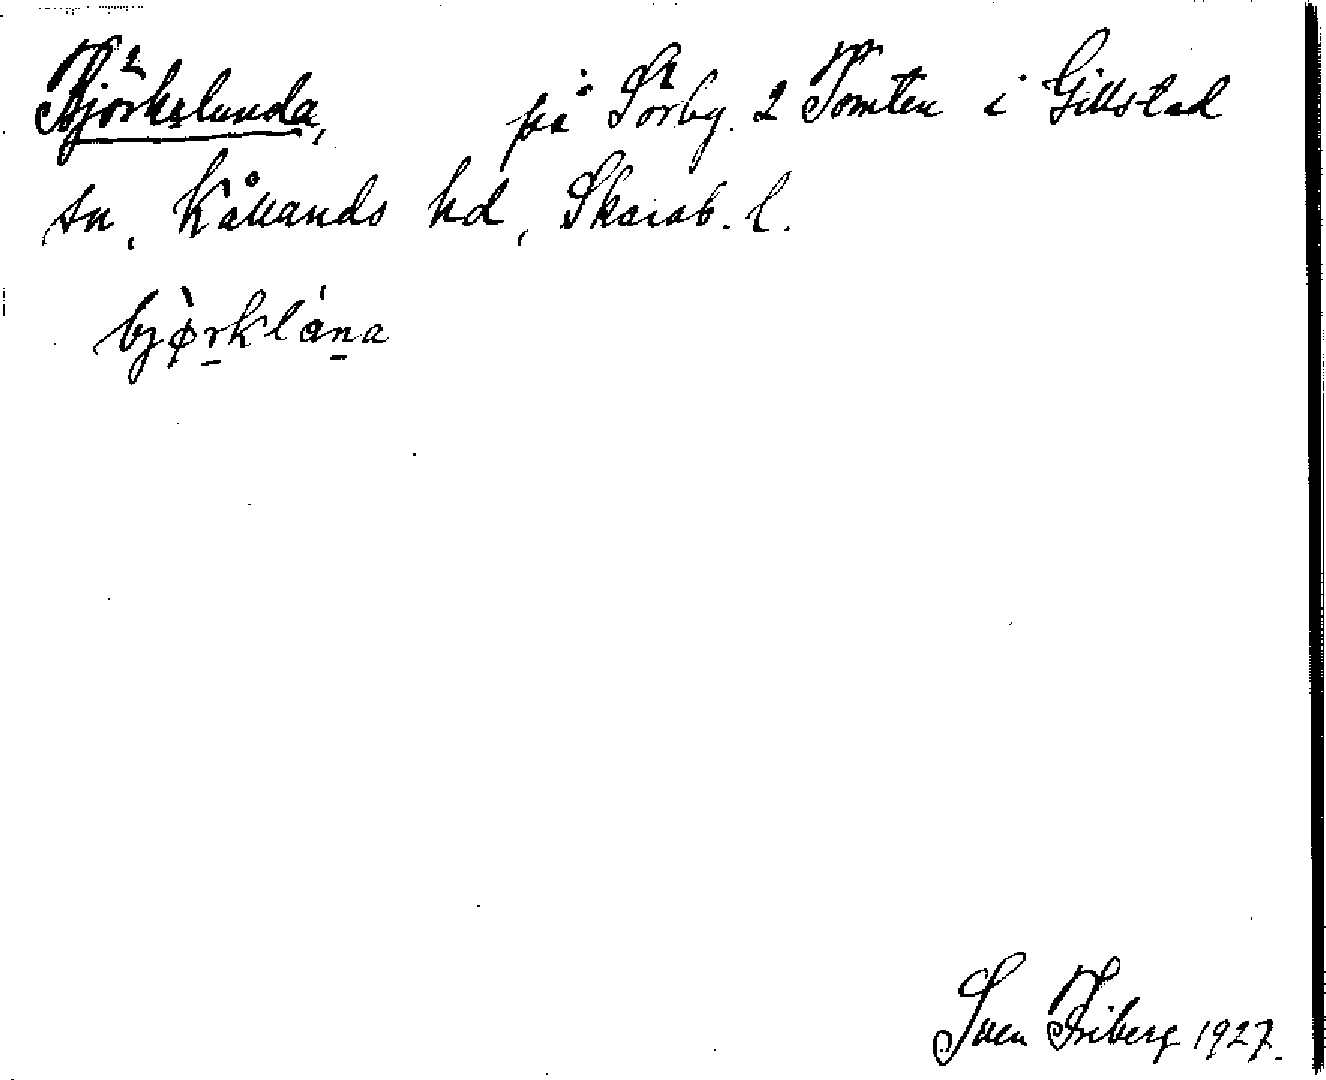 Björkslunda, på Sörby. 2 Tomten i Gillstad
sn, Kållands hd, Skarab. l.
bjø̀rklána
Sven Friberg 1927.